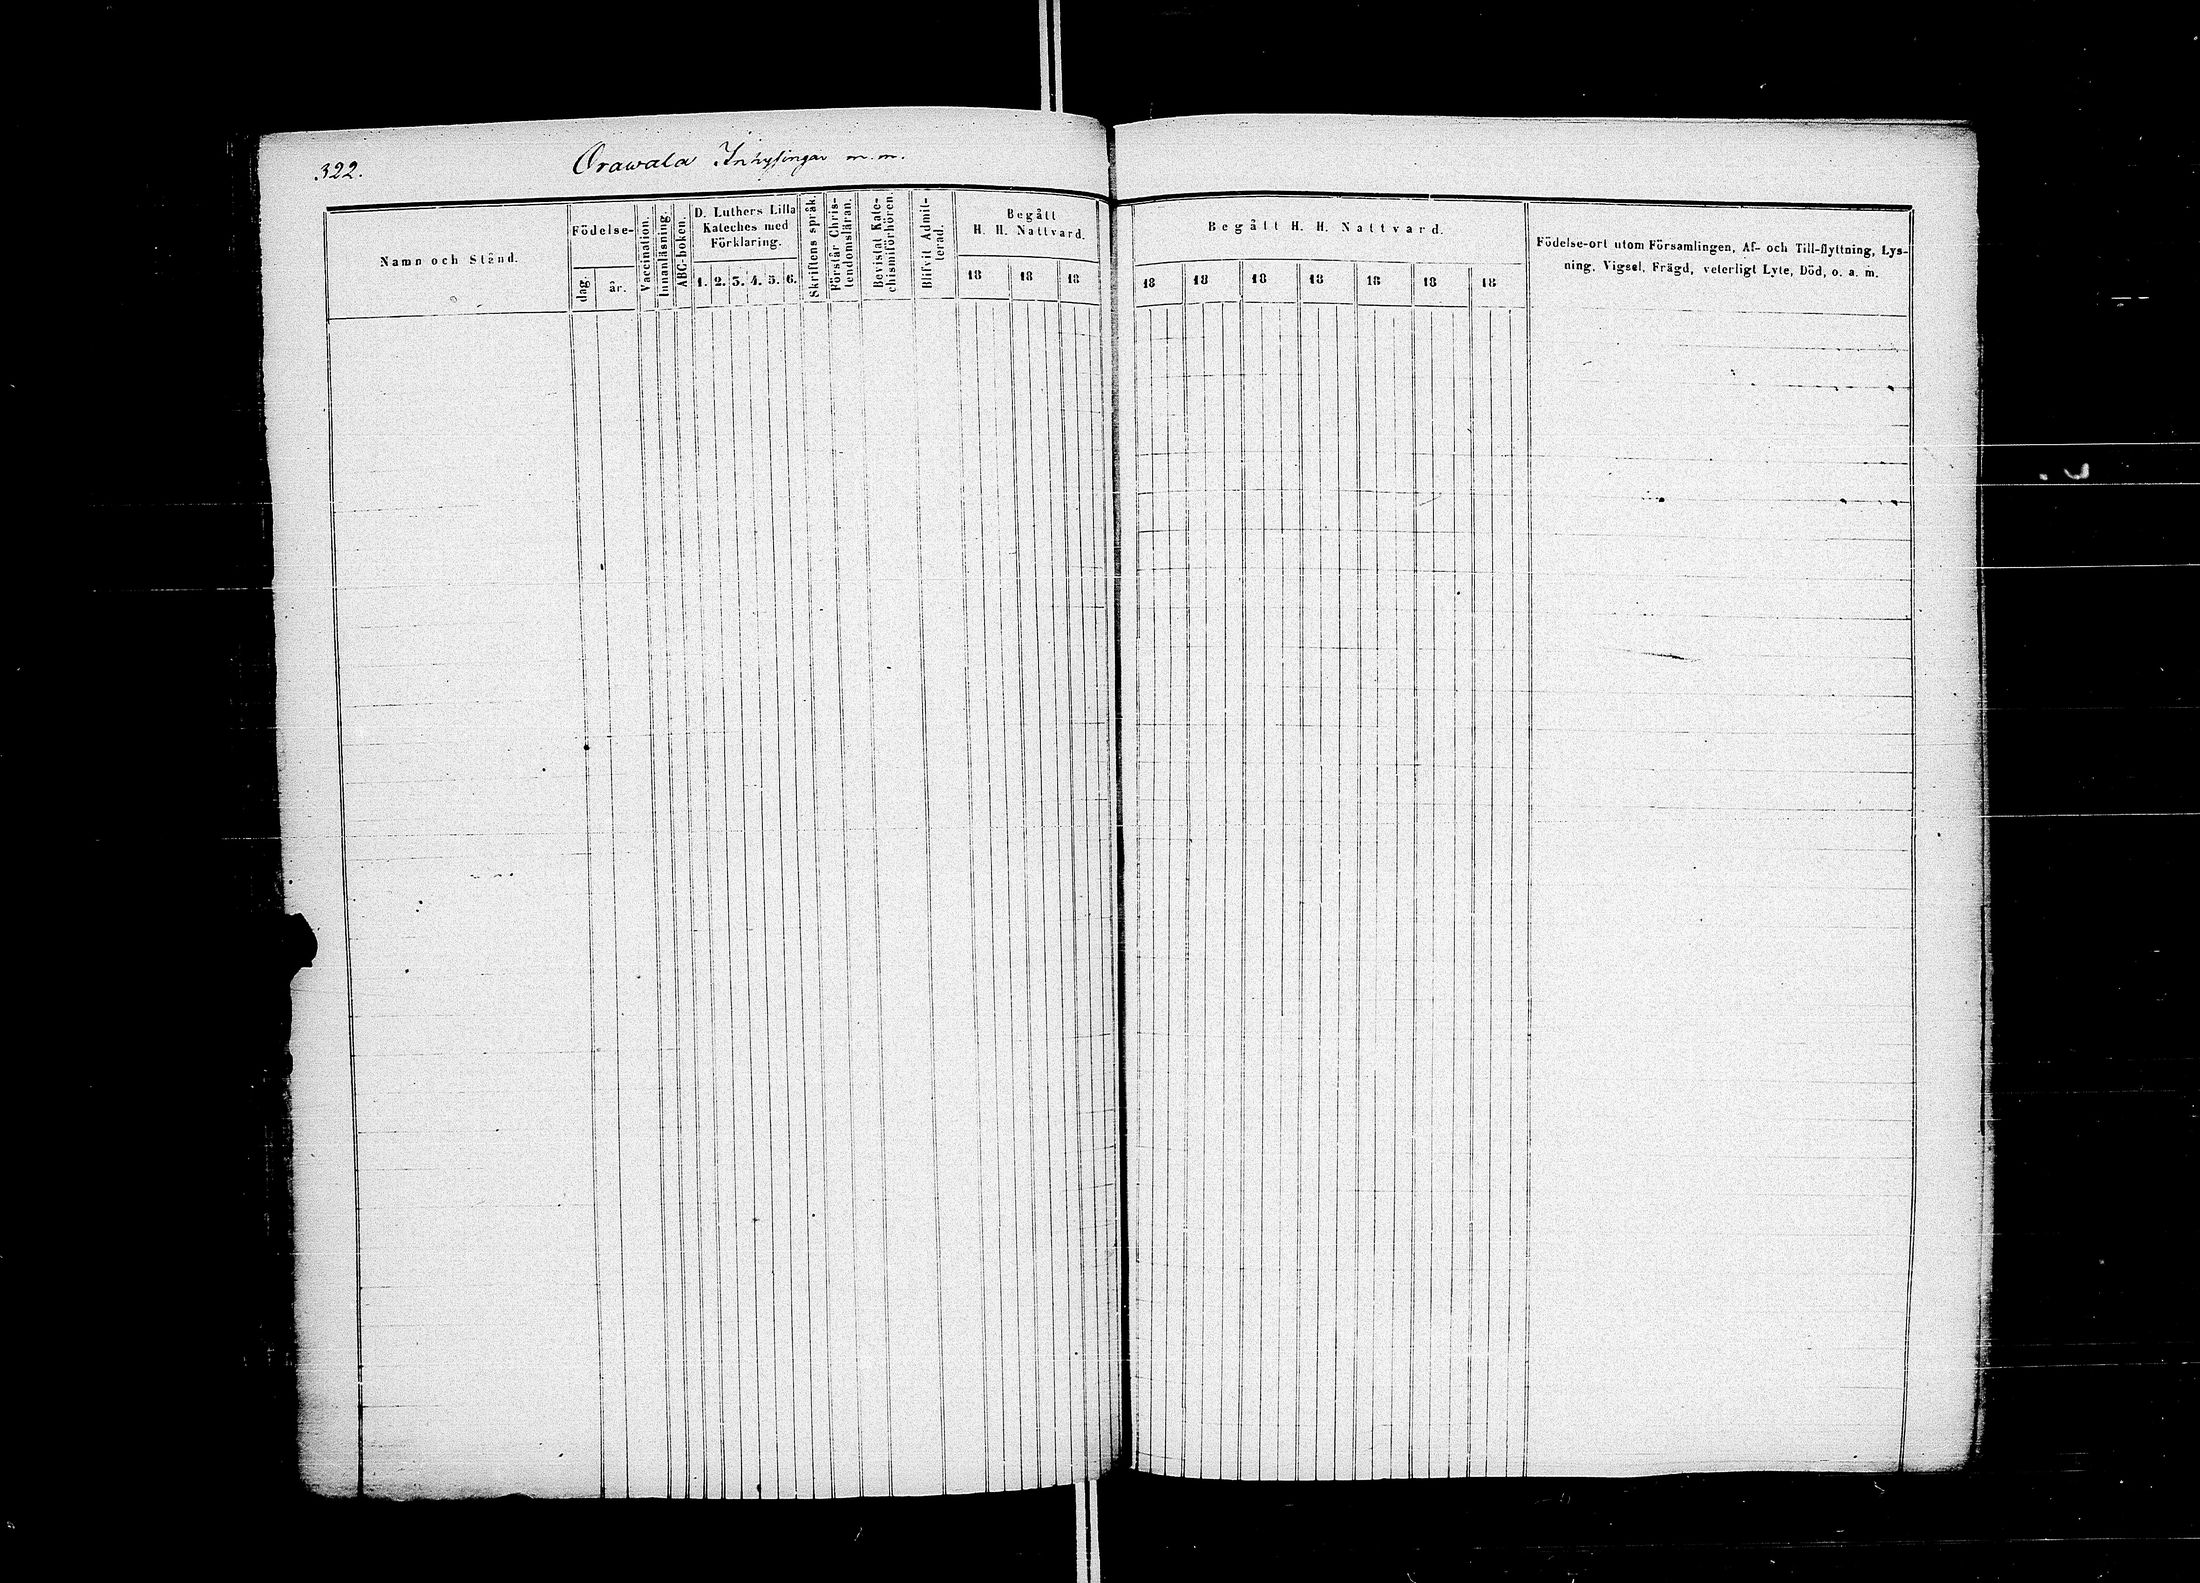 322.
Orawala Inhysingar m. m.
Namn och Stånd.
Födelse-
dag.
år.
Vaccination.
Innanläsning.
ABC-boken.
D. Luthers Lilla
Kateches med
Förklaring.
1. 2. 3. 4. 5. 6.
Skriftens språk.
Förstår Chris-
tendomsläran.
Bevistat Kate-
chismiförhören.
Blifvit Admit-
terad.
Begått
H. H. Nattvard.
18 18 18
Begått H. H. Nattvard.
18 18 18 18 18 18 18
Födelse-ort utom Församlingen, Af- och Till-flyttning, Lys-
ning, Vigsel, Frägd, veterligt Lyte, Död, o. a. m.